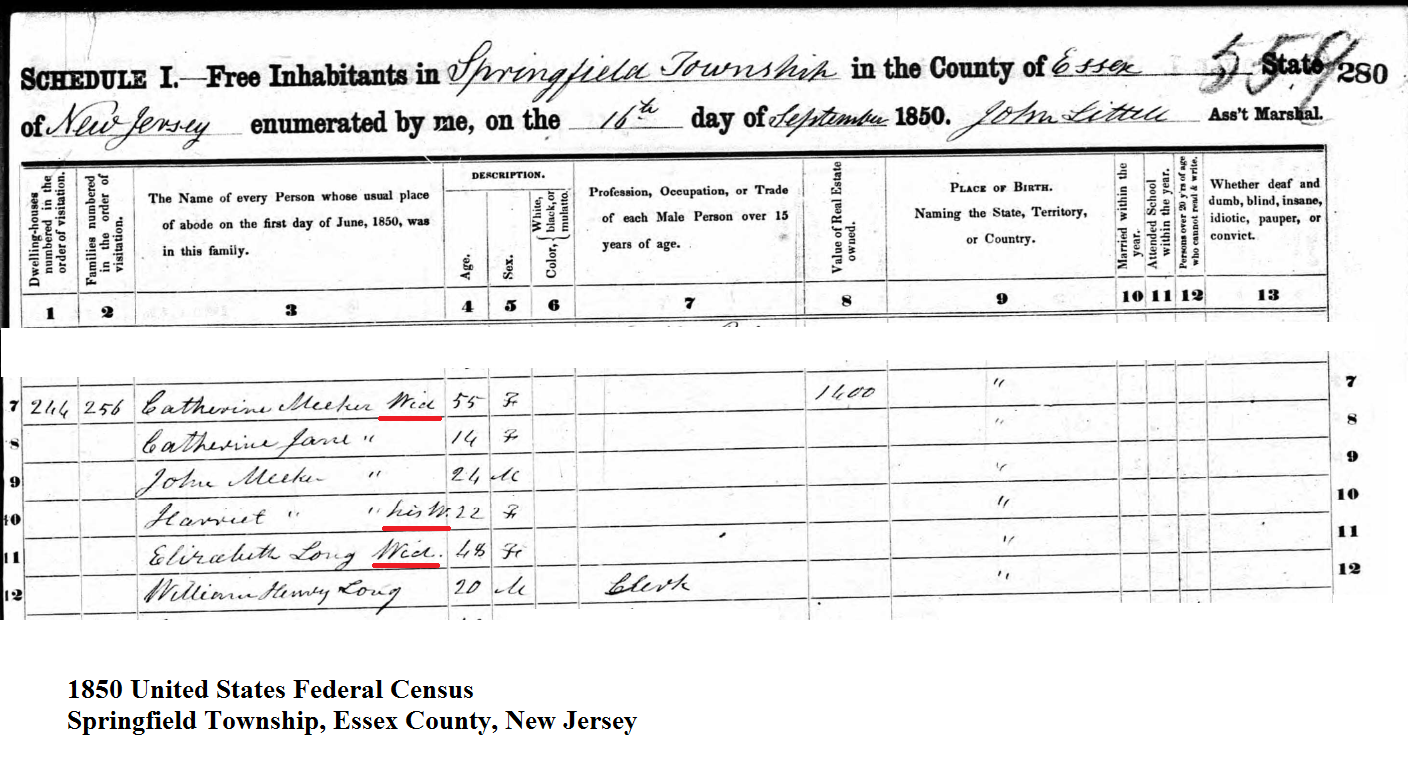 559
SCHEDULE I.—Free Inhabitants in Springfield Township in the County of Essex State 280
of New Jersey enumerated by me, on the 16th day of September 1850. John Littell Ass't Marshal.
Dwelling-houses numbered in the order of visitation.
Families numbered in the order of visitation.
The Name of every Person whose usual place
of abode on the first day of June, 1850, was
in this family.
DESCRIPTION.
Age.
Sex.
Color, { White, black, or mulatto.
Profession, Occupation, or Trade
of each Male Person over 15
years of age.
Value of Real Estate owned.
PLACE OF BIRTH.
Naming the State, Territory,
or Country.
Married within the year.
Attended School within the year.
Persons over 20 y'rs of age who cannot read & write.
Whether deaf and
dumb, blind, insane,
idiotic, pauper, or
convict.
1 2 3 4 5 6 7 8 9 10 11 12 13
7 244 256 Catherine Meeker Wid 55 F 1400 " 7
8 Catherine Jane " 14 F " 8
9 John Meeker " 24 M " 9
10 Harriet " " his W. 22 F " 10
11 Elizabeth Long Wid. 48 F " 11
12 William Henry Long 20 M Clerk " 12
1850 United States Federal Census
Springfield Township, Essex County, New Jersey